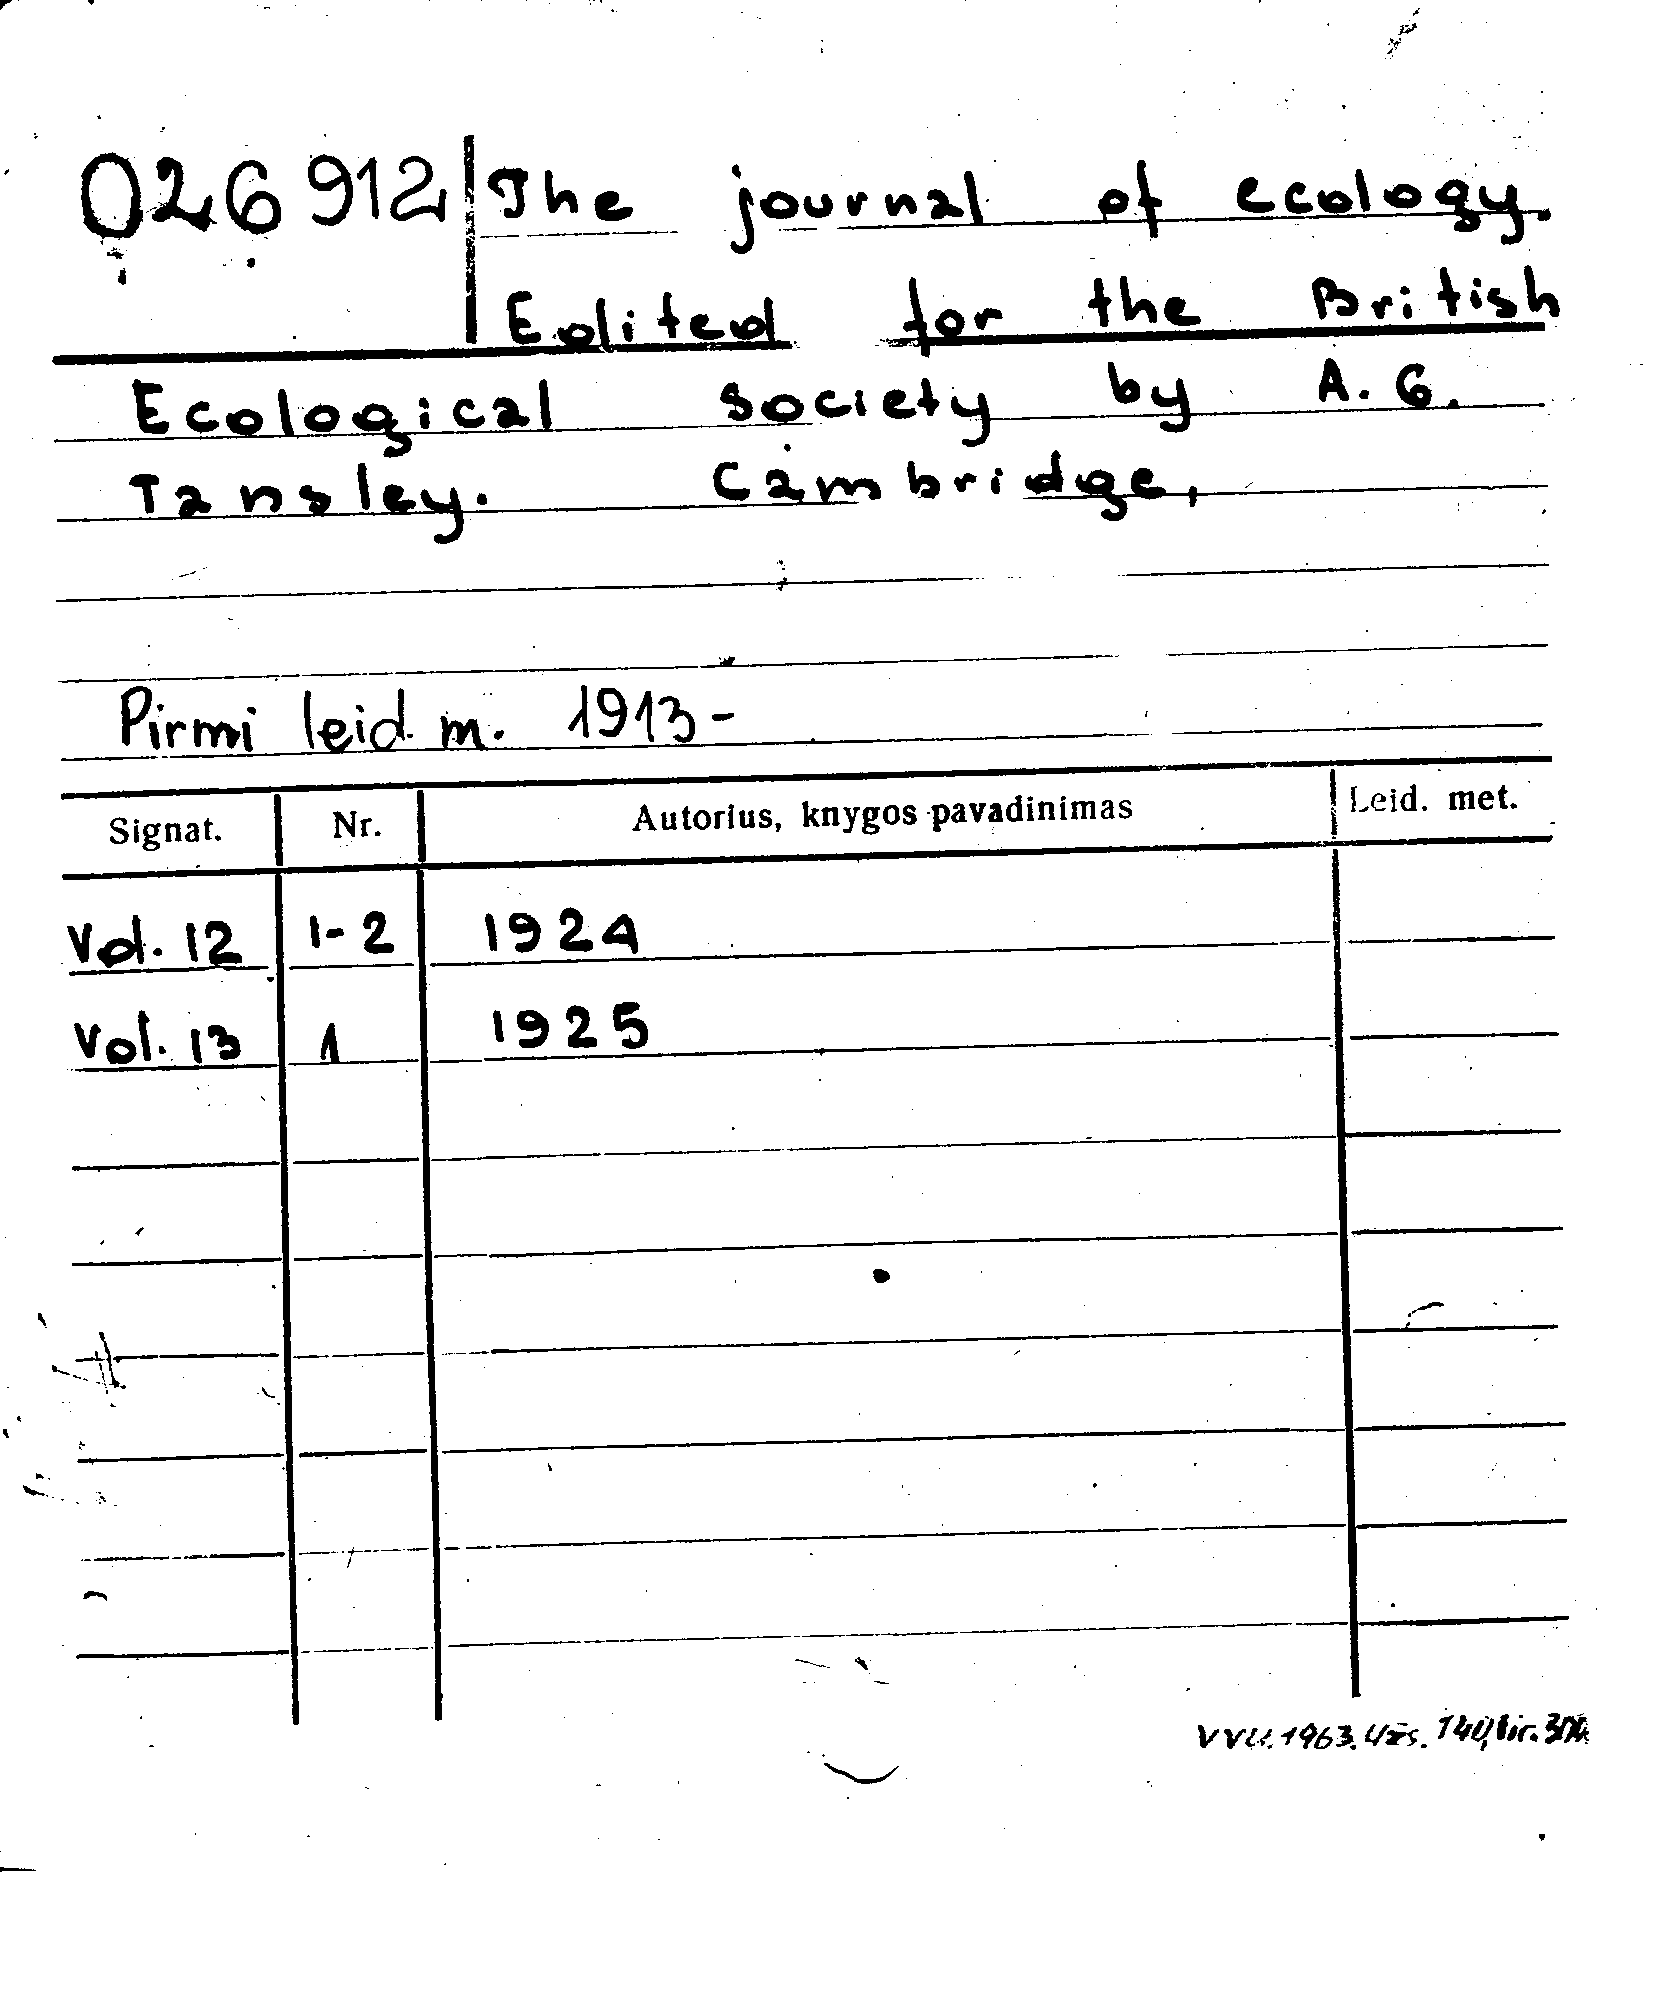 026 912 The journal of ecology.
Edited for the British
Ecological society by A. G.
Tansley. Cambridge,
Pirmi leid. m. 1913-
Signat. Nr. Autorius, knygos pavadinimas Leid. met.
Vol. 12 1-2 1924
Vol. 13 1 1925
VVU. 1963. Užs. 140, tir.